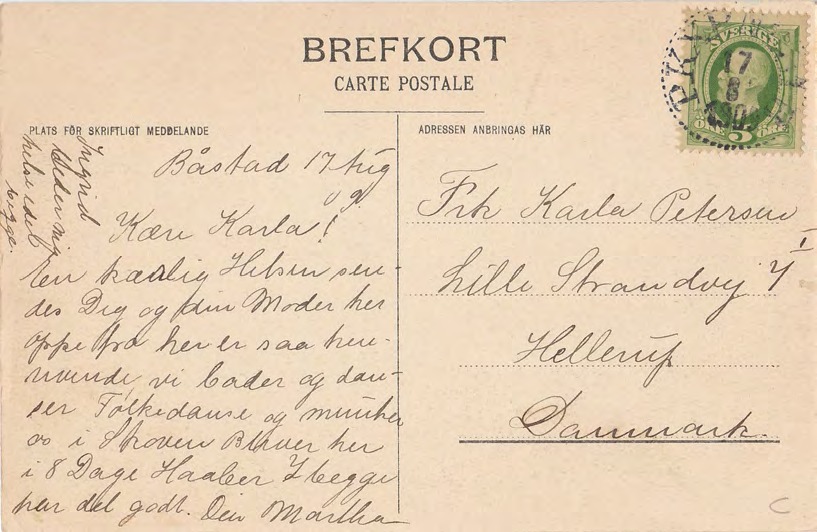 BREFKORT
CARTE POSTALE
PLATS FÖR SKRIFTLIGT MEDDELANDE
ADRESSEN ANBRINGAS HÄR
SVERIGE
17
8
ÖRE 5 ÖRE
Båstad 17 Aug
09.
Kære Karla!
En kærlig Hilsen sen-
des Dig og din Moder her
oppe fra her er saa hen-
rivende, vi bader og dan-
ser Folkedanse og
os i Skoven Bliver her
i 8 Dage Haaber I begge
har det godt. Din Martha
Ingrid
beder mig
hilse eder
begge.
Frk Karla Petersen
Lille Strandvej 4 I
Hellerup
Danmark.